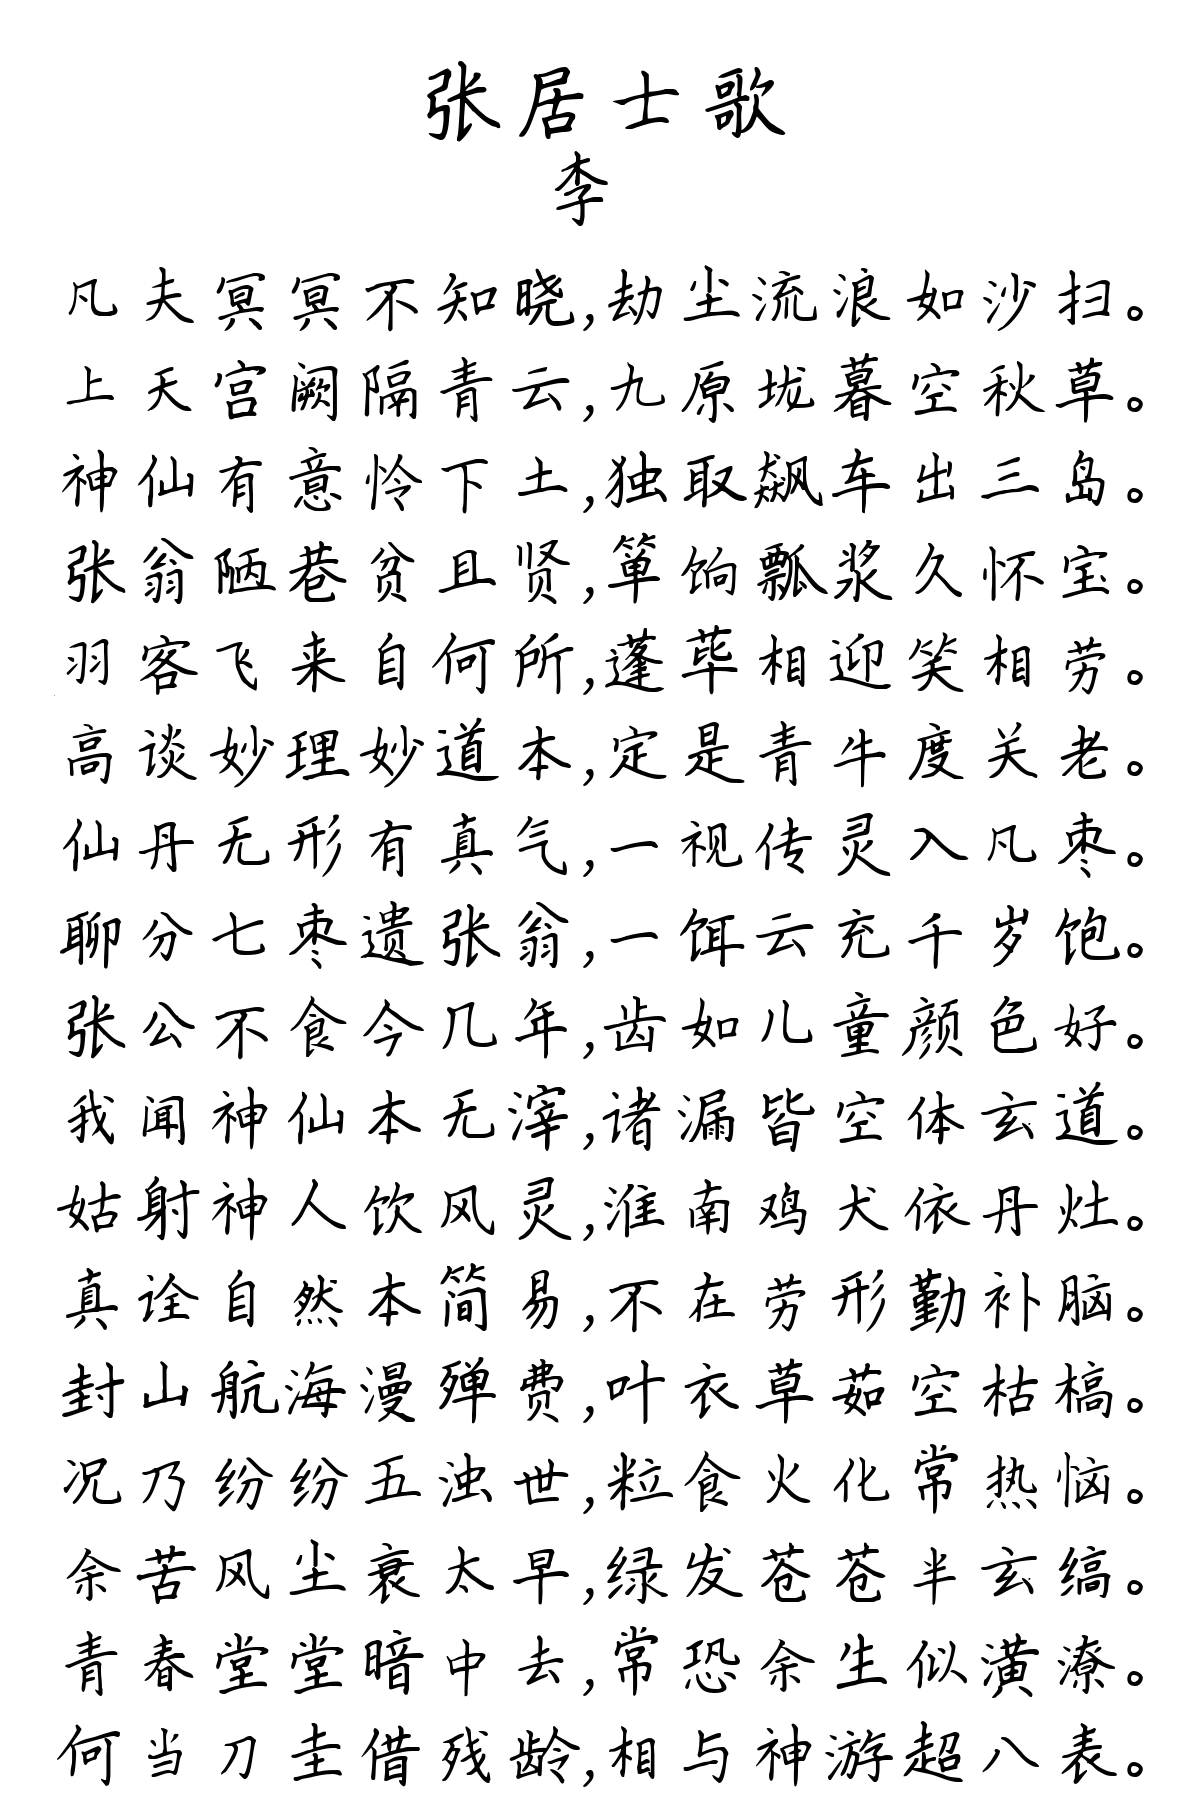 张居士歌
李
凡夫冥冥不知晓,劫尘流浪如沙扫。
上天宫阙隔青云,九原垅暮空秋草。
神仙有意怜下土,独取飙车出三岛。
张翁陋巷贫且贤,箪饷瓢浆久怀宝。
羽客飞来自何所,蓬荜相迎笑相劳。
高谈妙理妙道本,定是青牛度关老。
仙丹无形有真气,一视传灵入凡枣。
聊分七枣遗张翁,一饵云充千岁饱。
张公不食今几年,齿如儿童颜色好。
我闻神仙本无滓,诸漏皆空体玄道。
姑射神人饮风灵,淮南鸡犬依丹灶。
真诠自然本简易,不在劳形勤补脑。
封山航海漫殚费,叶衣草茹空枯槁。
况乃纷纷五浊世,粒食火化常热恼。
余苦风尘衰太早,绿发苍苍半玄缟。
青春堂堂暗中去,常恐余生似潢潦。
何当刀圭借残龄,相与神游超八表。